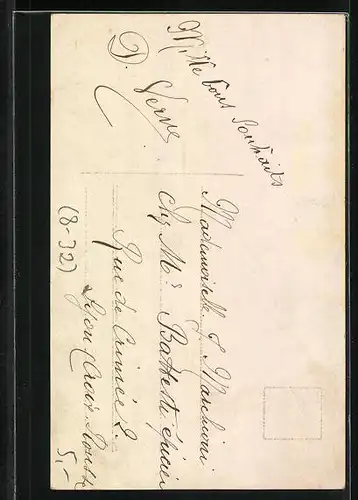 Mille bons Souhaits
D. Verne
Mademoiselle J. Marchioni
chez Mr Battesti épicier
Rue de Crimée 2.
Lyon (Croix Rousse
(8-32)
5,-